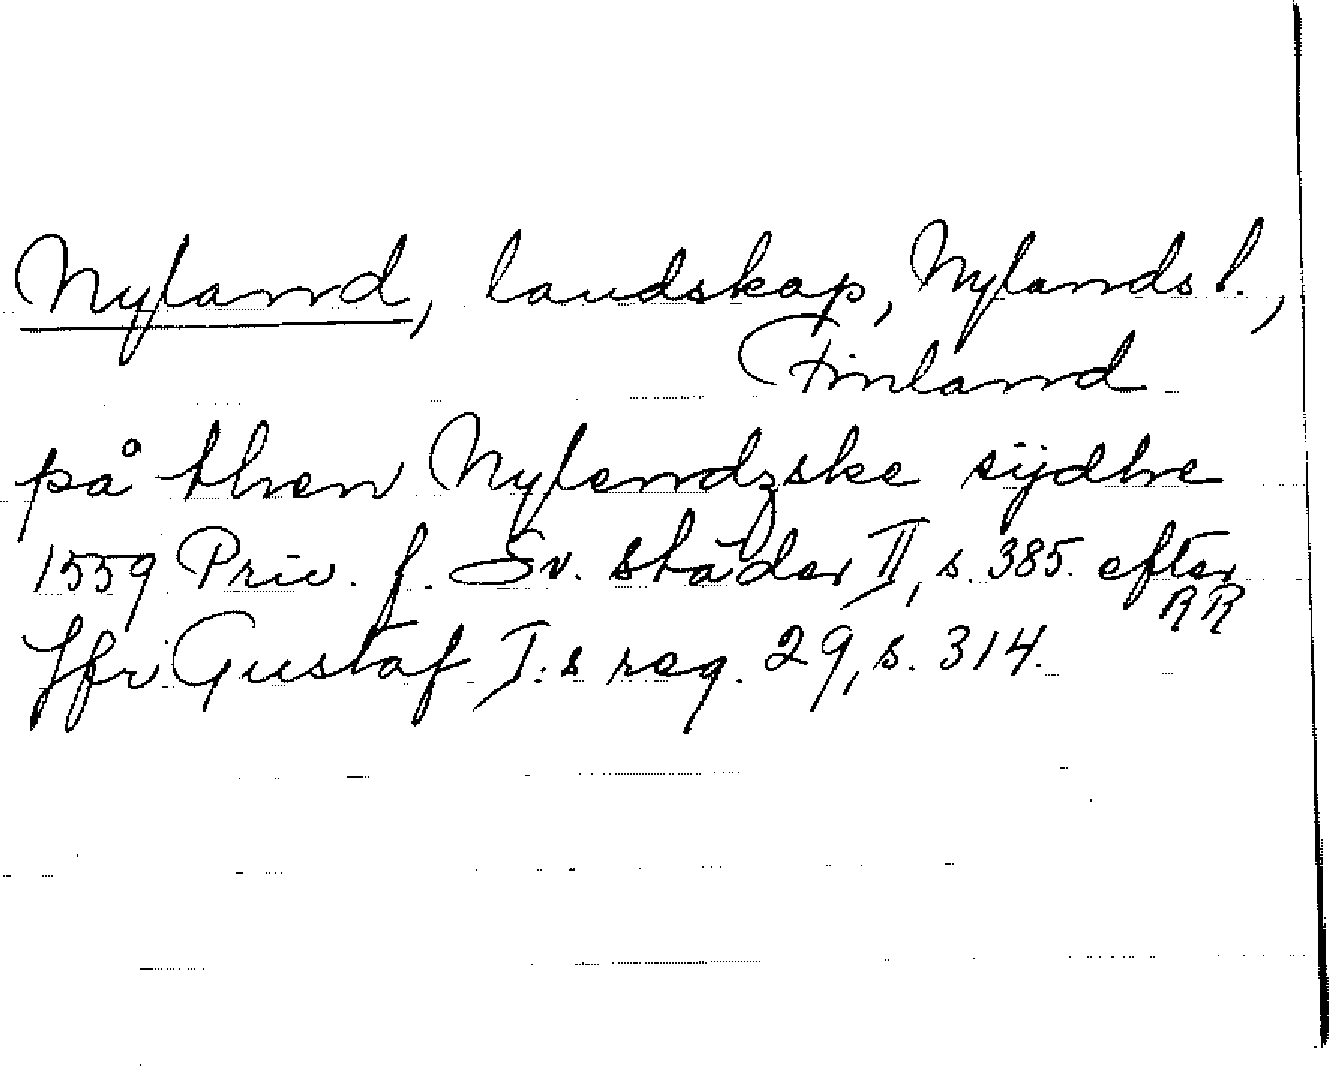 Nyland, landskap, Nylands l.,
Finland
på then Nylendzske sijdhe
1559 Priv. f. Sv. städer II, s. 385 efter
RR
Jfr Gustaf I:s reg. 29, s. 314.